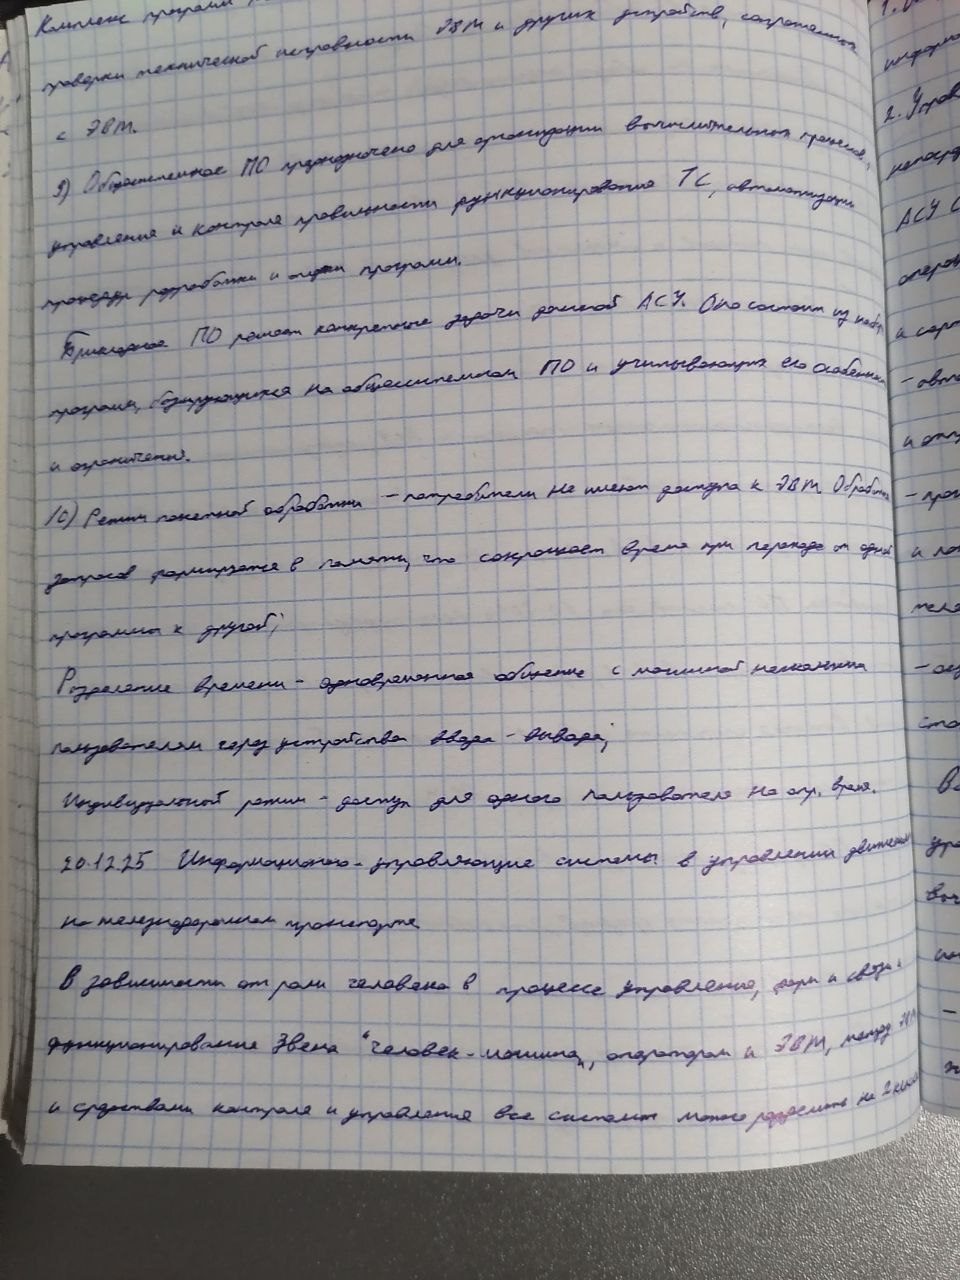 Комплекс программ
проверки технической исправности ЭВМ и других устройств, сопряженных
с ЭВМ.
9) Общесистемное ПО предназначено для организации вычислительных процессов,
управления и контроля правильности функционирования ТС, автоматизации
процедур разработки и отладки программ.
Прикладное ПО решает конкретные задачи данной АСУ. Оно состоит из набора
программ, базирующихся на общесистемном ПО и учитывающих его особенности
и ограничения.
10) Режим пакетной обработки – потребители не имеют доступа к ЭВМ. Обработка
запросов формируется в памяти, что сокращает время при переходе от одной
программы к другой;
Разделение времени – одновременное общение с машиной нескольким
пользователям через устройства ввода – вывода;
Индивидуальный режим – доступ для одного пользователя на опр. время.
20.12.25 Информационно-управляющие системы в управлении движением
на железнодорожном транспорте
В зависимости от роли человека в процессе управления, форм и связи и
функционирования звена "человек-машина", оператором и ЭВМ, между ЭВМ
и средствами контроля и управления все системы можно разделить на 2 класса
1.
2. Управ
АСУ
и
– авто
и
–
и
–
–